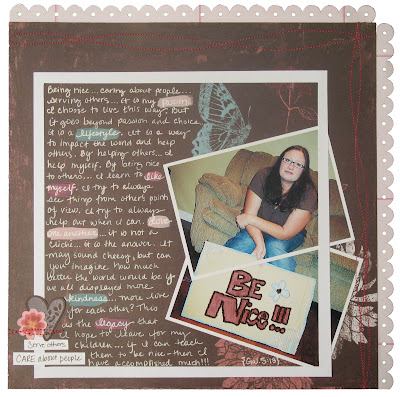 Being nice...caring about people...
serving others... it is my passion.
I choose to live this way. But
it goes beyond passion and choice
it is a lifestyle. It is a way
to impact the world and help
others. By helping others... I
help myself. By being nice
to others... I learn to like
myself. I try to always
see things from others point
of view. I try to always
help out when I can. Love
one another... it is not a
cliché... it is the answer. It
may sound cheesy, but can
you imagine how much
better the world would be if
we all displayed more
kindness... more love
for each other? This
is the legacy that
I hope to leave for my
children... if I can teach
them to be nice-then I
have accomplished much!!!
Serve others
CARE about people
BE
Nice!!!